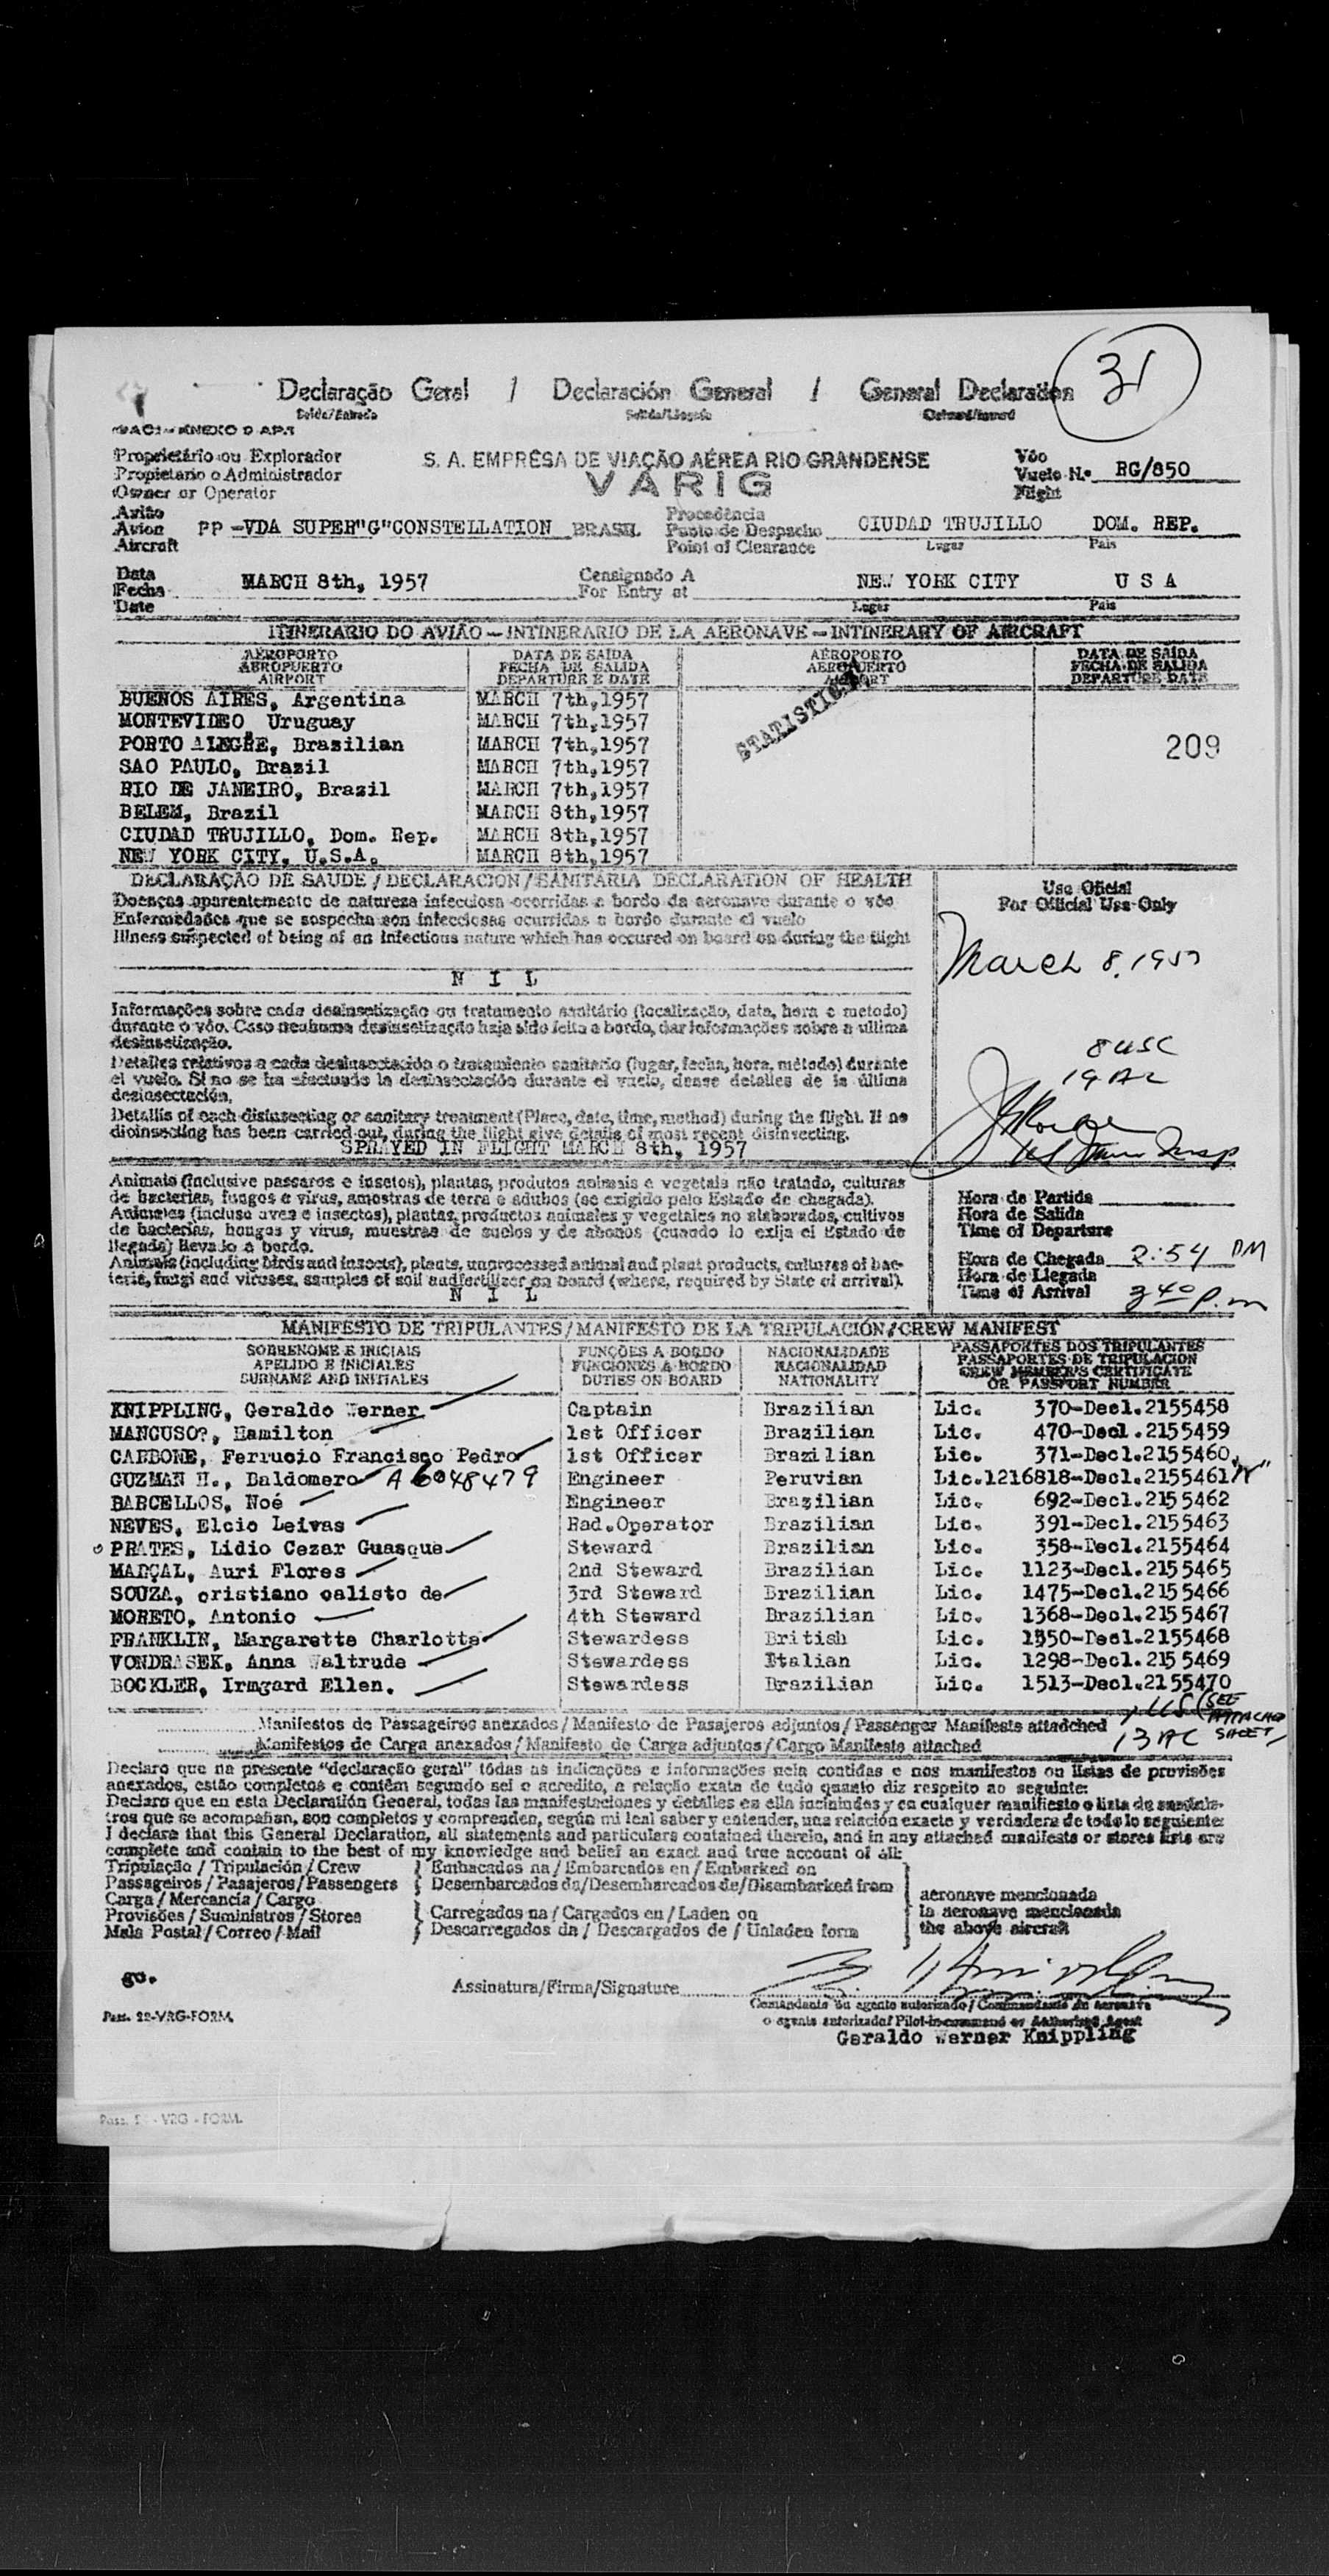 31
Declaração Geral / Declaración General / General Declaration
Saída/Entrada Salida/Llegada Outward/Inward
ANEXO 9 AP.1
Proprietário ou Explorador
Propietario o Administrador
Owner or Operator
S. A. EMPRÊSA DE VIAÇÃO AÉREA RIO GRANDENSE
VARIG
Vôo
Vuelo N.º RG/850
Flight
Avião
Avion
Aircraft
PP-VDA SUPER"G"CONSTELLATION BRASIL
Procedência
Punto de Despacho
Point of Clearance
CIUDAD TRUJILLO DOM. REP.
Lugar País
Data
Fecha
Date
MARCH 8th, 1957
Consignado A
For Entry at
NEW YORK CITY U S A
Lugar País
ITINERARIO DO AVIÃO — INTINERARIO DE LA AERONAVE — INTINERARY OF AIRCRAFT
AÉROPORTO
AEROPUERTO
AIRPORT
DATA DE SAÍDA
FECHA DE SALIDA
DEPARTURE E DATE
AÉROPORTO
AEROPUERTO
AIRPORT
DATA DE SAÍDA
FECHA DE SALIDA
DEPARTURE DATE
BUENOS AIRES, Argentina MARCH 7th,1957
MONTEVIDEO Uruguay MARCH 7th,1957
PORTO ALEGRE, Brasilian MARCH 7th,1957
SAO PAULO, Brazil MARCH 7th,1957
RIO DE JANEIRO, Brazil MARCH 7th,1957
BELEM, Brazil MARCH 8th,1957
CIUDAD TRUJILLO, Dom. Rep. MARCH 8th,1957
NEW YORK CITY, U.S.A. MARCH 8th,1957
STATISTICAL
209
DECLARAÇÃO DE SAUDE / DECLARACION / SANITARIA DECLARATION OF HEALTH
Doenças aparentemente de natureza infecciosa ocorridas a bordo da aeronave durante o vôo
Enfermedades que se sospecha son infecciosas ocurridas a bordo durante el vuelo
Illness suspected of being of an infectious nature which has occured on board on during the flight
N I L
Informações sobre cada desinsetização ou tratamento sanitário (localização, data, hora e metodo)
durante o vôo. Caso nenhuma desinsetização haja sido feita a bordo, dar informações sobre a ultima
desinsetização.
Detalles relativos a cada desinsectación o tratamiento sanitario (lugar, fecha, hora, método) durante
el vuelo. Si no se ha efectuado la desinsectación durante el vuelo, dense detalles de la última
desinsectación.
Detallis of each disinsecting or sanitary treatment (Place, date, time, method) during the flight. If no
dioinsecting has been carried out, during the flight give details of most recent disinsecting.
SPRAYED IN FLIGHT MARCH 8th, 1957
Uso Oficial
For Official Use Only
March 8, 1957
8 USC
19 AL
Animais (inclusive passaros e insetos), plantas, produtos animais e vegetais não tratado, culturas
de bacterias, fungos e virus, amostras de terra e adubos (se exigido pelo Estado de chegada).
Animales (incluso aves e insectos), plantas, productos animales y vegetales no alaborados, cultivos
de bacterias, hongos y virus, muestras de suelos y de abonos (cuando lo exija el Estado de
llegada) llevado a bordo.
Animals (including birds and insects), plants, unprocessed animal and plant products, cultures of bac-
teria, fungi and viruses, samples of soil and fertilizer on board (where, required by State of arrival).
N I L
Hora de Partida
Hora de Salida
Time of Departure
Hora de Chegada 2:54 PM
Hora de Llegada
Time of Arrival 3 40 p.m
MANIFESTO DE TRIPULANTES / MANIFESTO DE LA TRIPULACIÓN / CREW MANIFEST
SOBRENOME E INICIAIS
APELIDO E INICIALES
SURNAME AND INITIALES
FUNÇÕES A BORDO
FUNCIONES A BORDO
DUTIES ON BOARD
NACIONALIDADE
NACIONALIDAD
NATIONALITY
PASSAPORTES DOS TRIPULANTES
PASSAPORTES DE TRIPULACION
CREW MEMBER'S CERTIFICATE
OR PASSPORT NUMBER
KNIPPLING, Geraldo Werner Captain Brazilian Lic. 370-Decl.2155458
MANCUSO?, Hamilton 1st Officer Brazilian Lic. 470-Decl.2155459
CARBONE, Ferrucio Francisco Pedro 1st Officer Brazilian Lic. 371-Decl.2155460
GUZMAN H., Baldomero A 6048479 Engineer Peruvian Lic.1216818-Decl.2155461
BARCELLOS, Noé Engineer Brazilian Lic. 692-Decl.2155462
NEVES, Elcio Leivas Rad.Operator Brazilian Lic. 391-Decl.2155463
PRATES, Lidio Cezar Guasque Steward Brazilian Lic. 358-Decl.2155464
MARÇAL, Auri Flores 2nd Steward Brazilian Lic. 1123-Decl.2155465
SOUZA, cristiano calisto de 3rd Steward Brazilian Lic. 1475-Decl.2155466
MORETO, Antonio 4th Steward Brazilian Lic. 1368-Decl.2155467
FRANKLIN, Margarette Charlotte Stewardess British Lic. 1550-Decl.2155468
VONDRASEK, Anna Waltrude Stewardess Italian Lic. 1298-Decl.2155469
BOCKLER, Irmgard Ellen. Stewardess Brazilian Lic. 1513-Decl.2155470
Manifestos de Passageiros anexados / Manifesto de Pasajeros adjuntos / Passenger Manifests attadched
Manifestos de Carga anexados / Manifesto de Carga adjuntos / Cargo Manifests attached
(SEE ATTACHED SHEET)
13 AC
Declaro que na presente "declaração geral" tôdas as indicações e informações nela contidas e nos manifestos ou listas de provisões
anexados, estão completos e contêm segundo sei e acredito, a relação exata de tudo quanto diz respeito ao seguinte:
Declaro que en esta Declaratión General, todas las manifestaciones y detalles en ella incluidas y en cualquer manifiesto o lista de suminis-
tros que se acompañan, son completos y comprenden, según mi leal saber y entender, una relación exacta y verdadera de todo lo seguiente:
I declare that this General Declaration, all statements and particulars contained therein, and in any attached manifests or stores lists are
complete and contain to the best of my knowledge and belief an exact and true account of all:
Tripulação / Tripulación / Crew
Passageiros / Pasajeros / Passengers
Carga / Mercancía / Cargo
Provisões / Suministros / Stores
Mala Postal / Correo / Mail
Embacados na / Embarcados en / Embarked on
Desembarcados da/Desembarcados de/Disambarked from
Carregados na / Cargados en / Laden on
Descarregados da / Descargados de / Unladen form
aeronave mencionada
la aeronave mencionada
the above aircraft
gc.
Assinatura/Firma/Signature
Comandante ou agente autorizado / Commandante de Aeronave
o agente autorizado / Pilot-in-command or Authorized Agent
Geraldo Werner Knippling
Pass. 22-VRG-FORM.
- VRG - FORM.